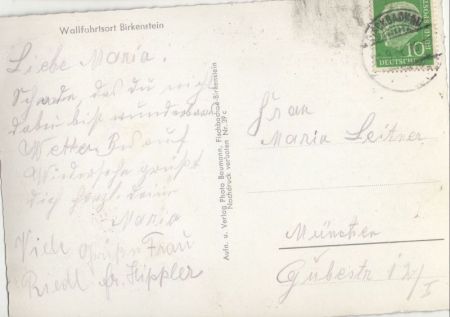 Wallfahrtsort Birkenstein
Liebe Maria!
Schade, das du nicht
dabei bist wunderbares
Wetter. Bis auf
Wiedersehn grüßt
dich herzl. deine
Maria
Viele Grüße Frau
Riedl Fr. Hippler
Aufn. u. Verlag Photo Baumann, Fischbachau-Birkenstein
Nachdruck verboten Nr. 39 c
10
DEUTSCHE BUNDESPOST
Frau
Maria Leitner
München
Gübestr 12/I